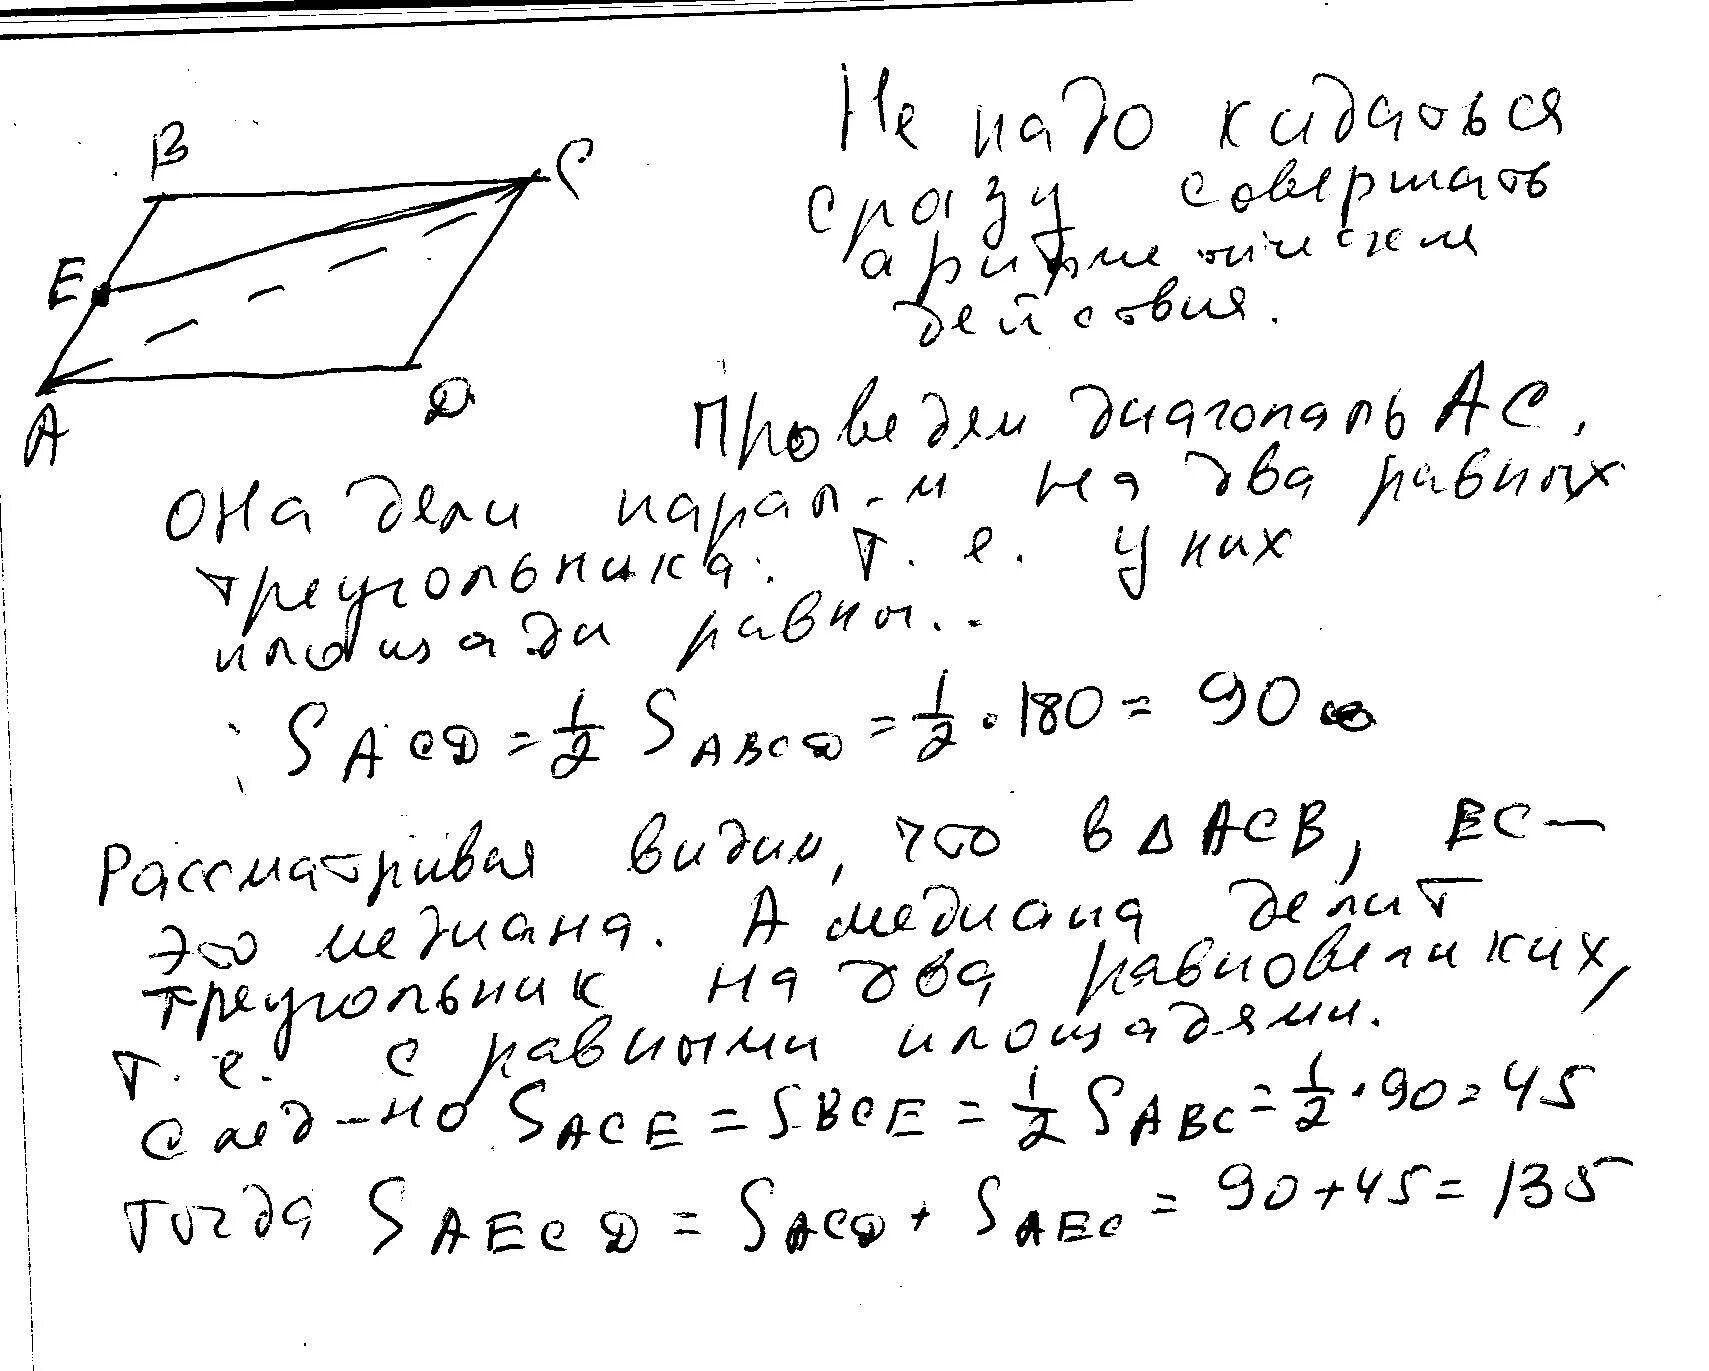 B
C
E
A
D
Не надо кидаться
сразу совершать
арифметические
действия.
Проведем диагональ AC,
она дели парал-м на два равных
треугольника. т. е. у них
площади равны..
S ACD = 1/2 S ABCD = 1/2 · 180 = 90
Рассматривая видим, что в Δ ACB, EC –
это медиана. А медиана делит
треугольник на два равновеликих,
т. е. с равными площадями.
След-но S ACE = S BCE = 1/2 S ABC = 1/2 · 90 = 45
тогда S AECD = S ACD + S AEC = 90 + 45 = 135